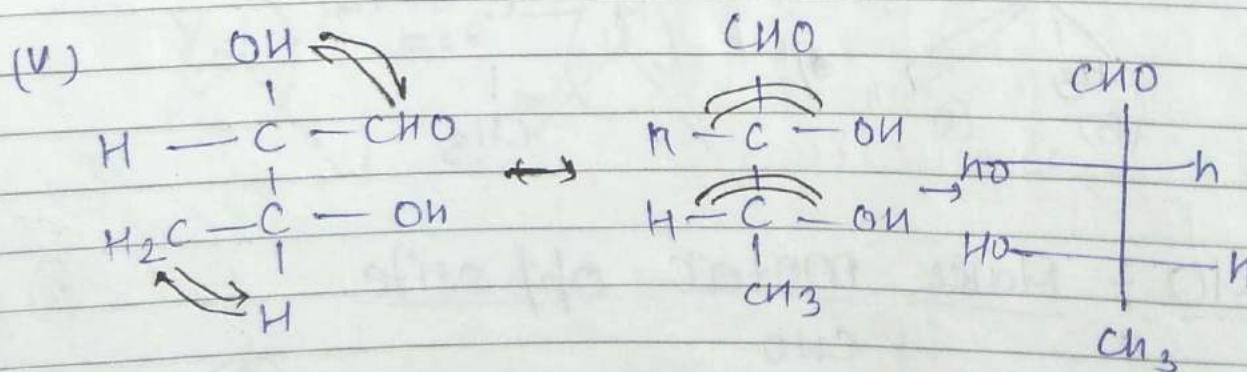 (V)
OH
H — C — CHO
H₂C — C — OH
H
CHO
h — C — OH
H — C — OH
CH3
CHO
hO h
HO H
Ch3